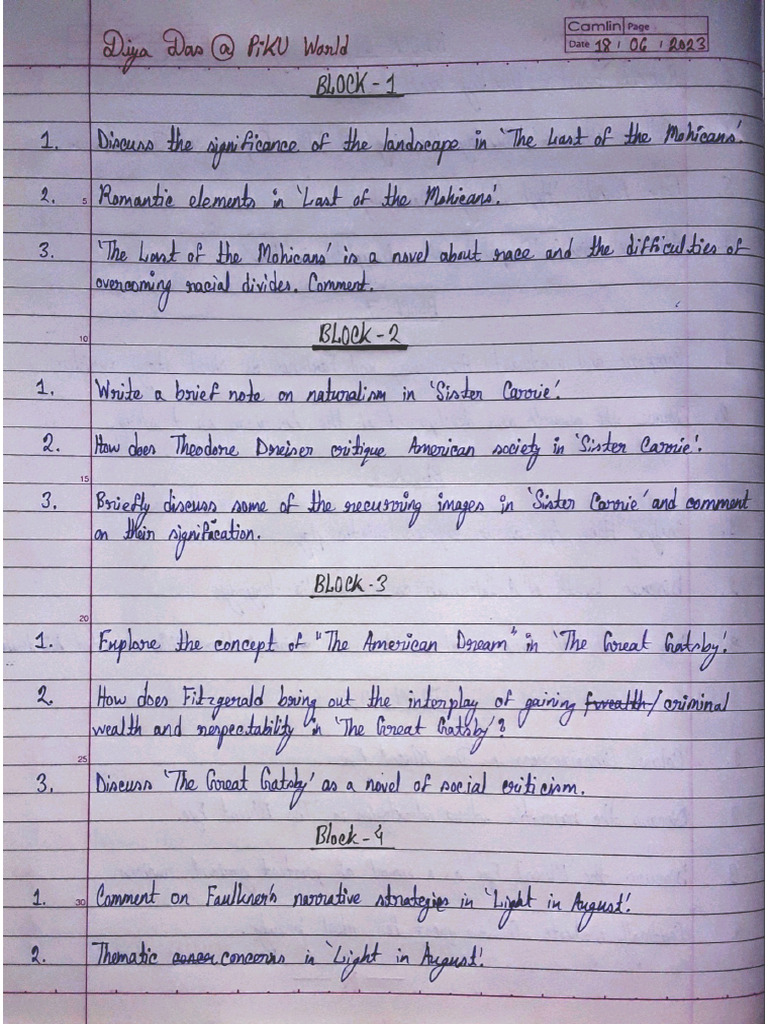 Diya Das @ PiKU World
Camlin Page
Date 18 / 06 / 2023
BLOCK - 1
1. Discuss the significance of the landscape in 'The Last of the Mohicans'.
5
2. Romantic elements in 'Last of the Mohicans'.
3. 'The Last of the Mohicans' is a novel about race and the difficulties of
overcoming racial divides. Comment.
10
BLOCK - 2
1. Write a brief note on naturalism in 'Sister Carrie'.
2. How does Theodore Dreiser critique American society in 'Sister Carrie'.
15
3. Briefly discuss some of the recurring images in 'Sister Carrie' and comment
on their signification.
BLOCK - 3
20
1. Explore the concept of "The American Dream" in 'The Great Gatsby'.
2. How does Fitzgerald bring out the interplay of gaining wealth/criminal
wealth and respectability in 'The Great Gatsby'?
25
3. Discuss 'The Great Gatsby' as a novel of social criticism.
Block - 4
30
1. Comment on Faulkner's narrative strategies in 'Light in August'.
2. Thematic concerns in 'Light in August'.